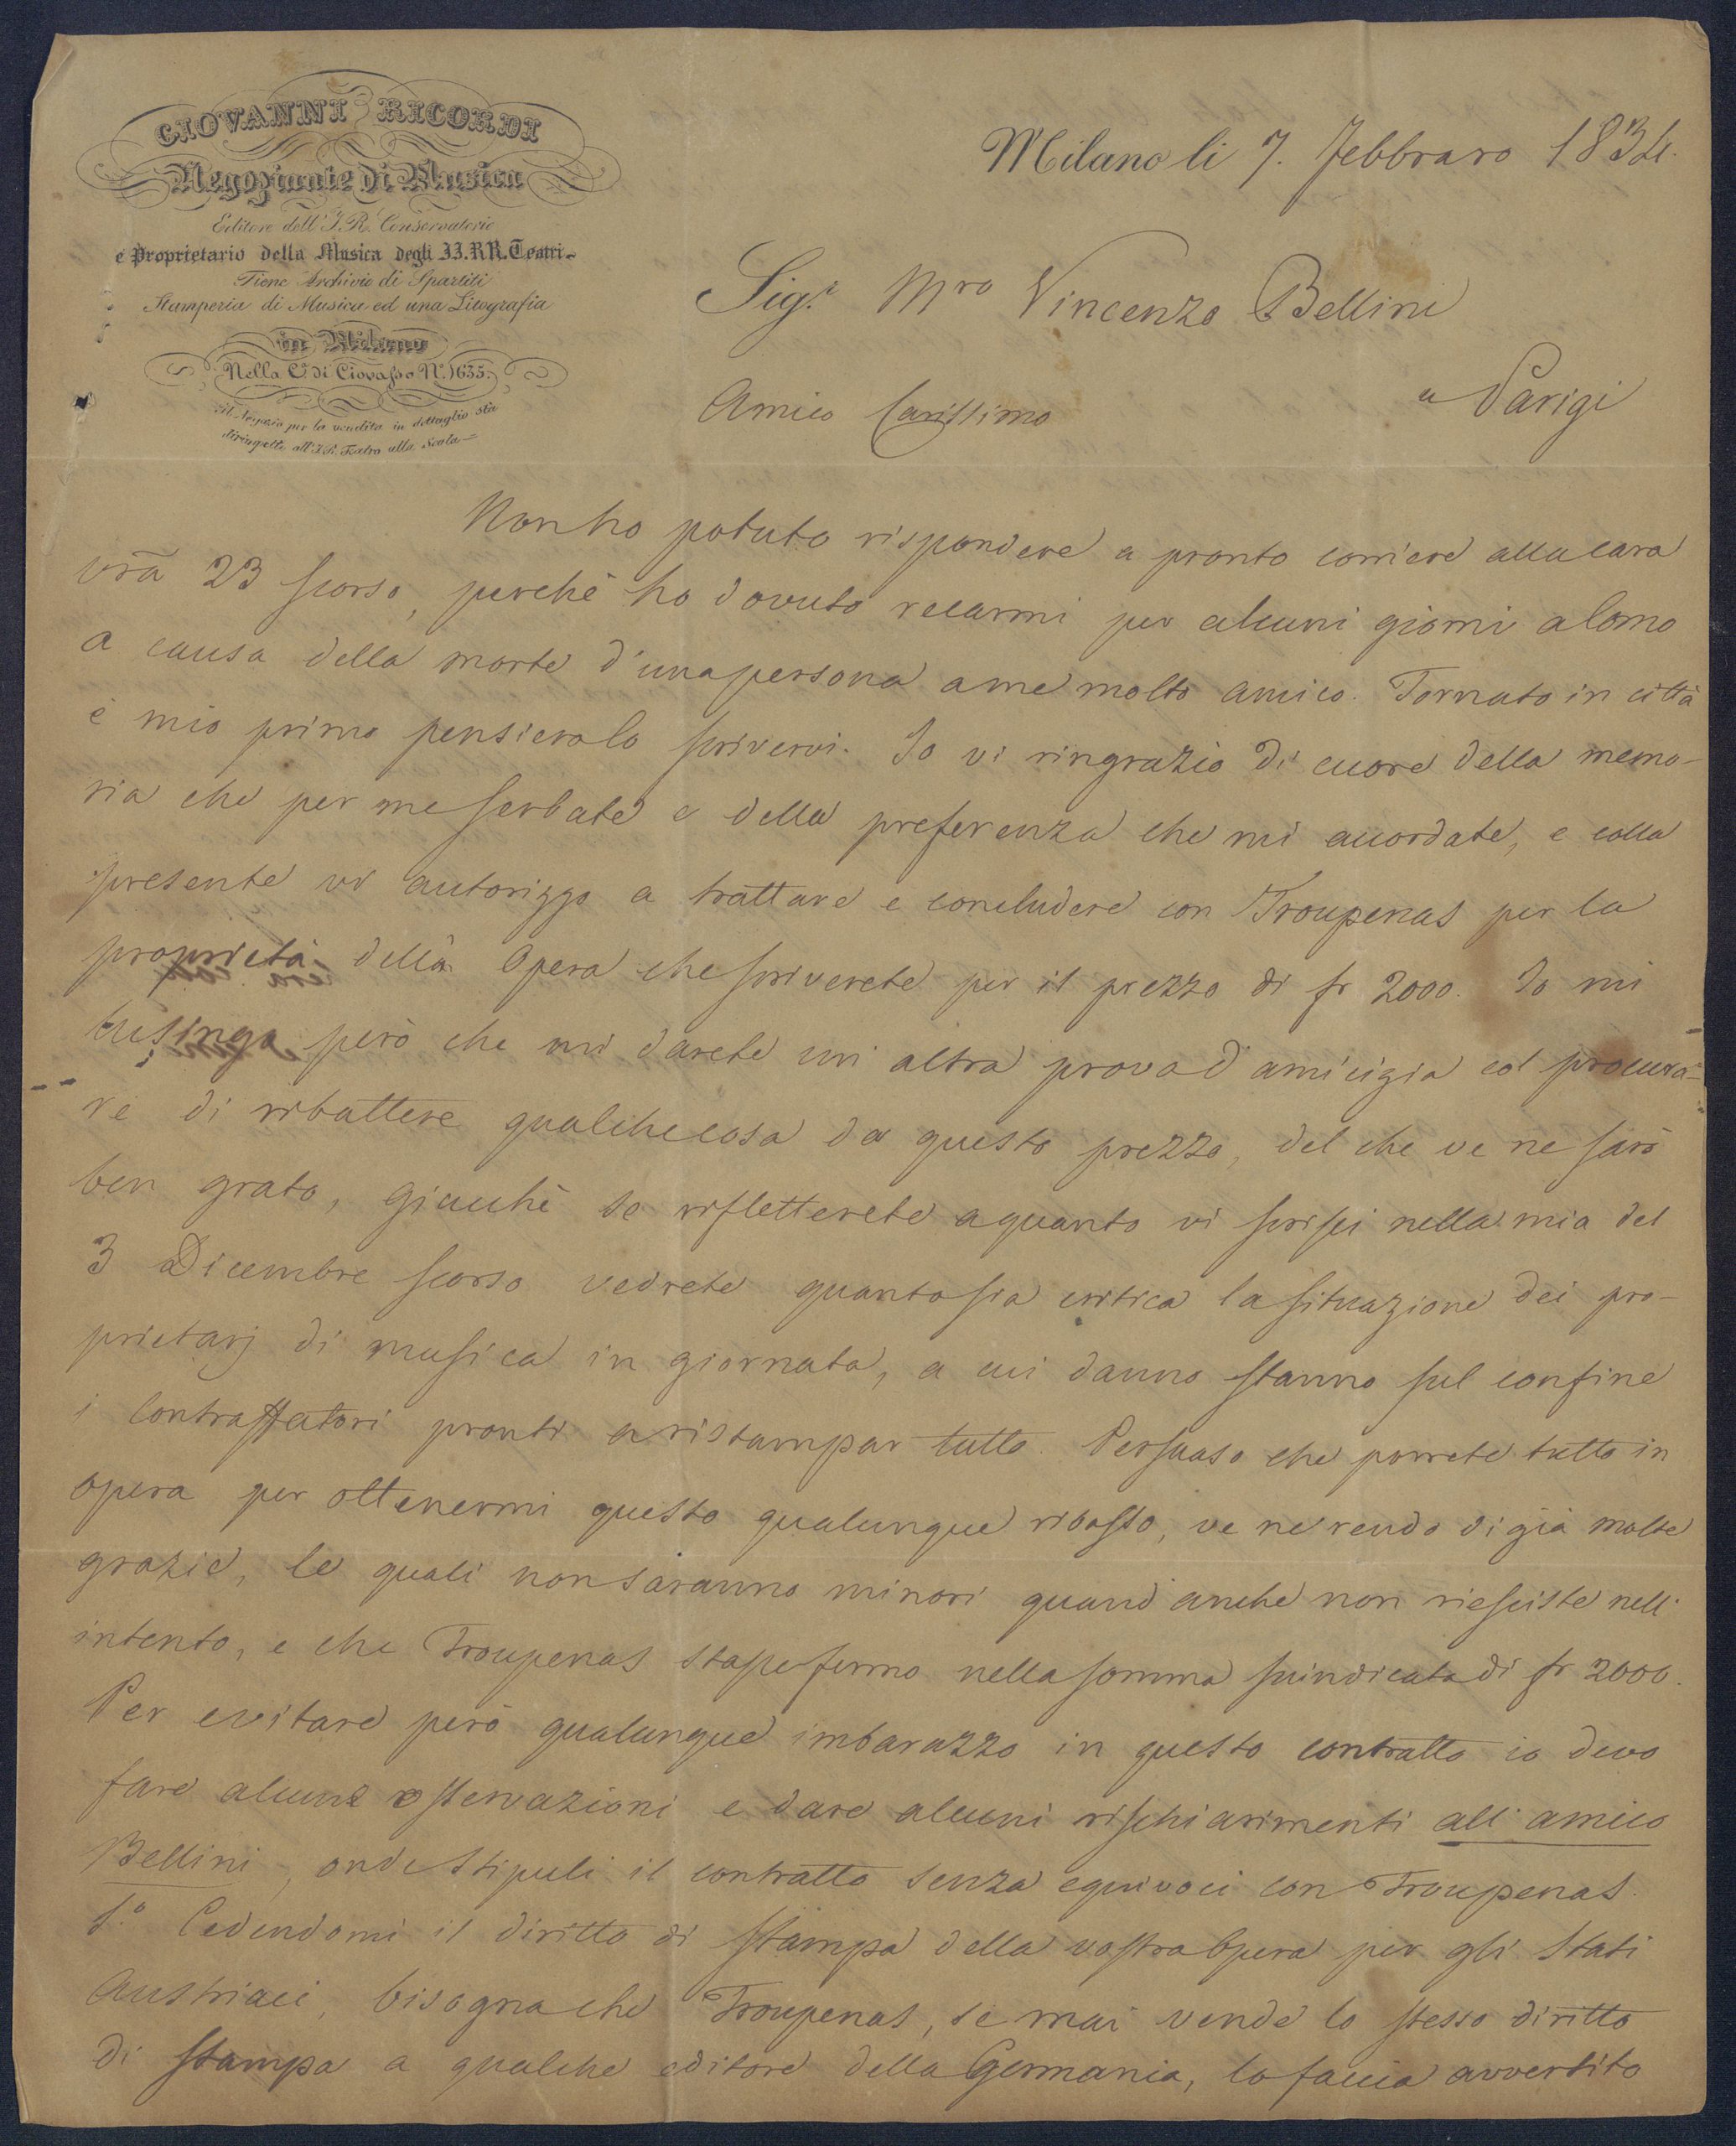 GIOVANNI RICORDI
Negoziante di Musica
Editore dell'I. R. Conservatorio
e Proprietario della Musica degli II. RR. Teatri
Tiene Archivio di Spartiti
Stamperia di Musica ed una Litografia
in Milano
Nella Cª di Ciovasso Nº 1635.
il Negozio per la vendita in dettaglio sta
dirimpetto all'I. R. Teatro alla Scala
Milano li 7. Febbraro 1834.
Sig.r Mro Vincenzo Bellini
a Parigi
Amico Carissimo
Non ho potuto rispondere a pronto corriere alla cara
vrã 23 scorso, perchè ho dovuto recarmi per alcuni giorni a Como
a causa della morte d'una persona a me molto amico. Tornato in città
è mio primo pensiero lo scrivervi. Io vi ringrazio di cuore della memo-
ria che per me serbate e della preferenza che mi accordate, e colla
presente vi autorizzo a trattare e concludere con Troupenas per la
proprietà della Opera che scriverete per il prezzo di fr 2000. Io mi
lusingo però che mi darete un altra prova d'amicizia col procura-
re di ribattere qualche cosa da questo prezzo, del che ve ne sarò
ben grato, giacchè se rifletterete a quanto vi scrissi nella mia del
3 Dicembre scorso vedrete quanto sia critica la situazione dei pro-
prietarj di musica in giornata, a cui danno stanno sul confine
i contraffatori pronti a ristampar tutto. Persuaso che porrete tutto in
opera per ottenermi questo qualunque ribasso, ve ne rendo di già molte
grazie, le quali non saranno minori quand'anche non riesciste nell'
intento, e che Troupenas stasse fermo nella somma suindicata di fr 2000.
Per evitare però qualunque imbarazzo in questo contratto io devo
fare alcune osservazioni e dare alcuni rischiarimenti all'amico
Bellini, onde stipuli il contratto senza equivoci con Troupenas.
1.º Cedendomi il diritto di stampa della vostra Opera per gli Stati
Austriaci, bisogna che Troupenas, se mai vende lo stesso diritto
di stampa a qualche editore della Germania, lo faccia avvertito